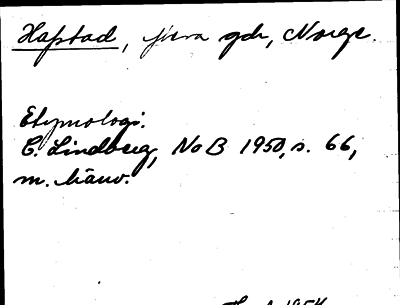 Hafstad, gda, Norge.
Etymologi.
C. Lindberg, NoB 1950, s. 66,
m. hänv.
1954